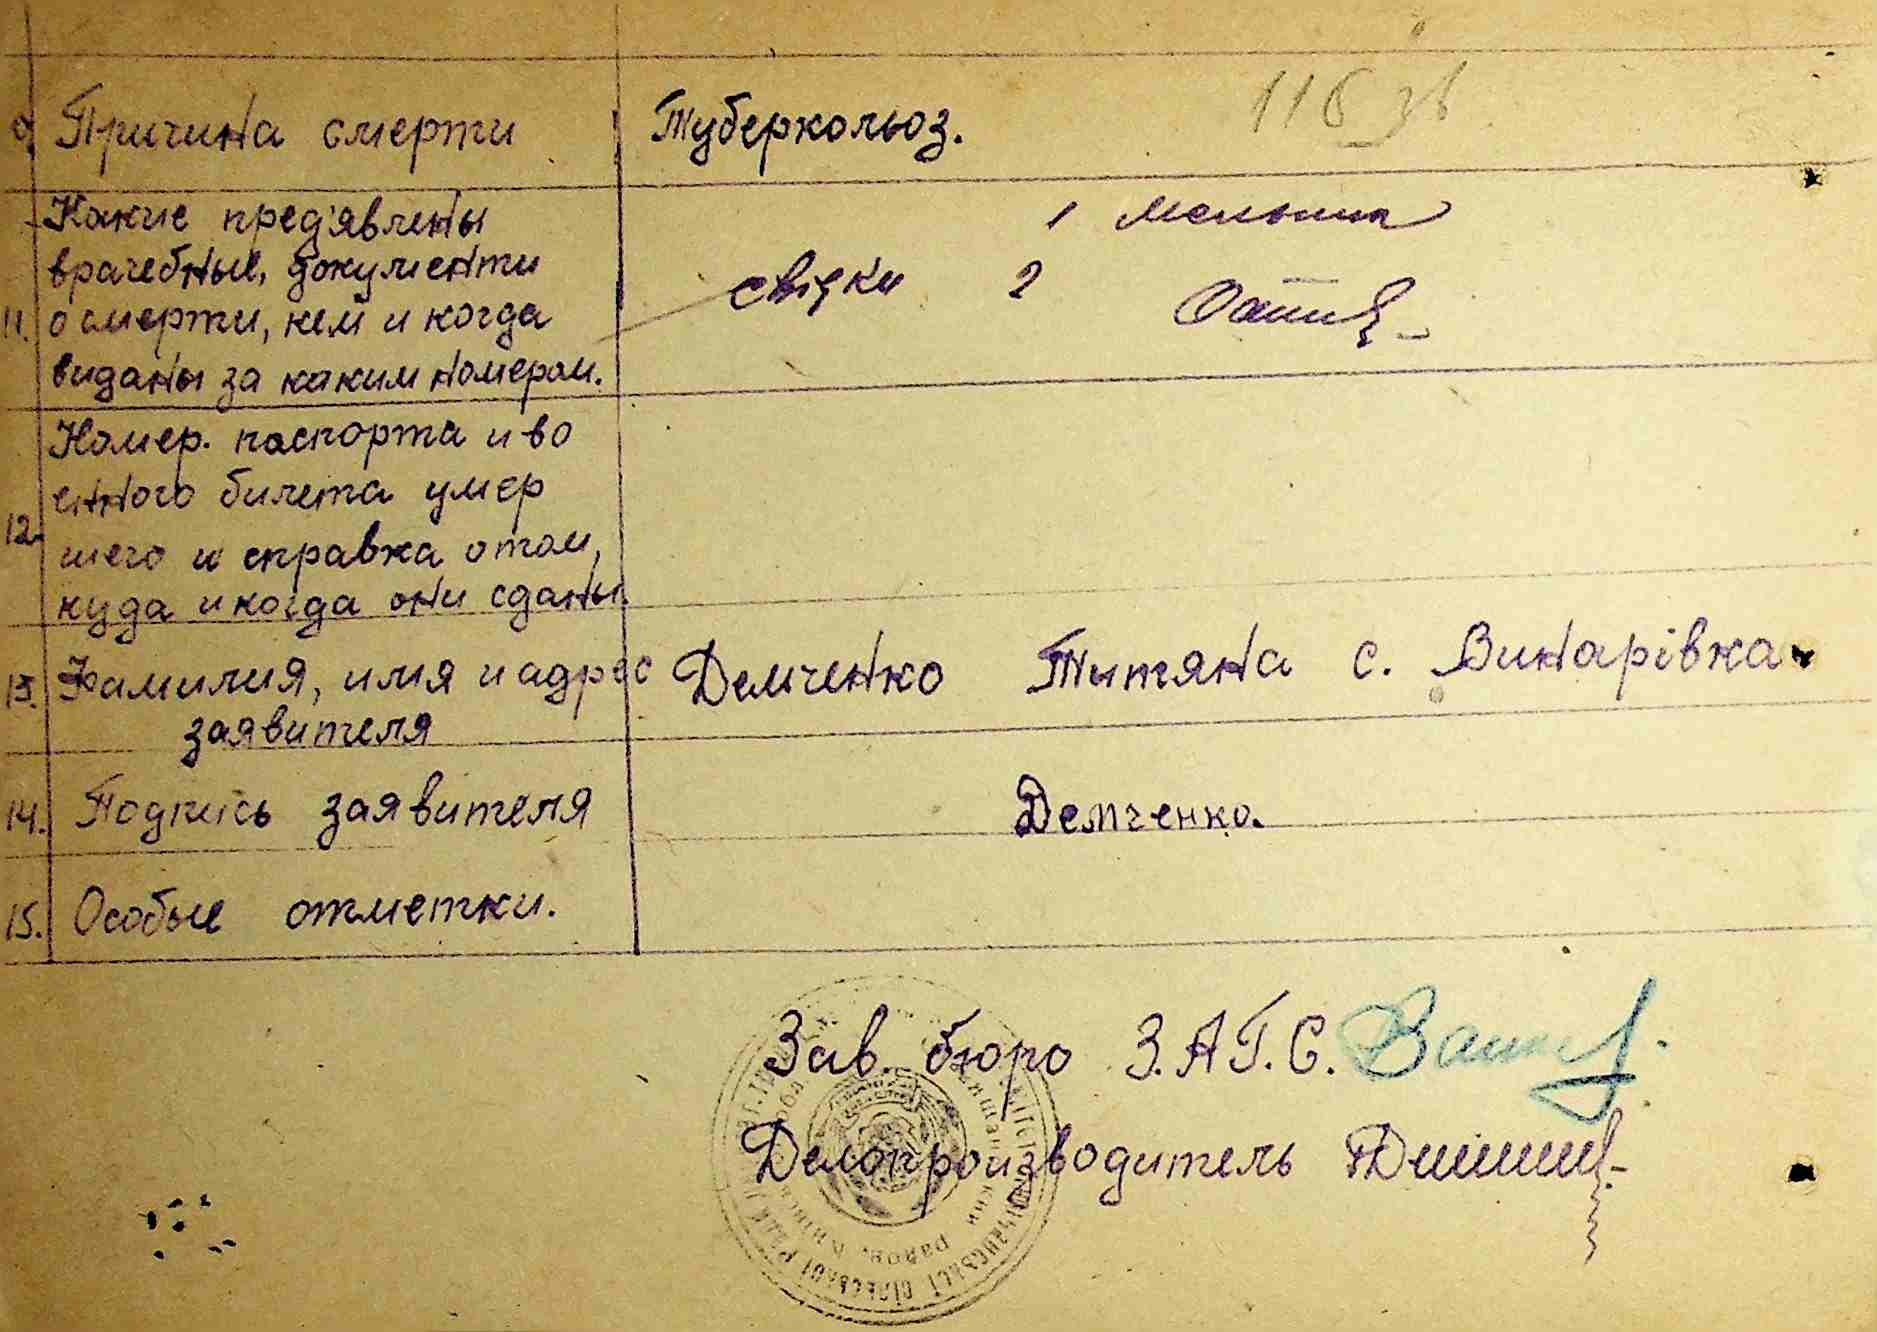 116 зв
9. Причина смерти
Туберкольоз.
Какие пред'явлены
врачебные, документи
11. о смерти, кем и когда
виданы за каким номером.
1 Мельник
свідки 2
Номер. паспорта и во
енного билета умер
12. шего и справка о том,
куда и когда они сданы.
13. Фамилия, имя и адрес
заявителя
Демченко Титяна с. Винарівка
14. Подпись заявителя
Демченко.
15. Особые отметки.
Зав. бюро З.А.Г.С.
Делопроизводитель